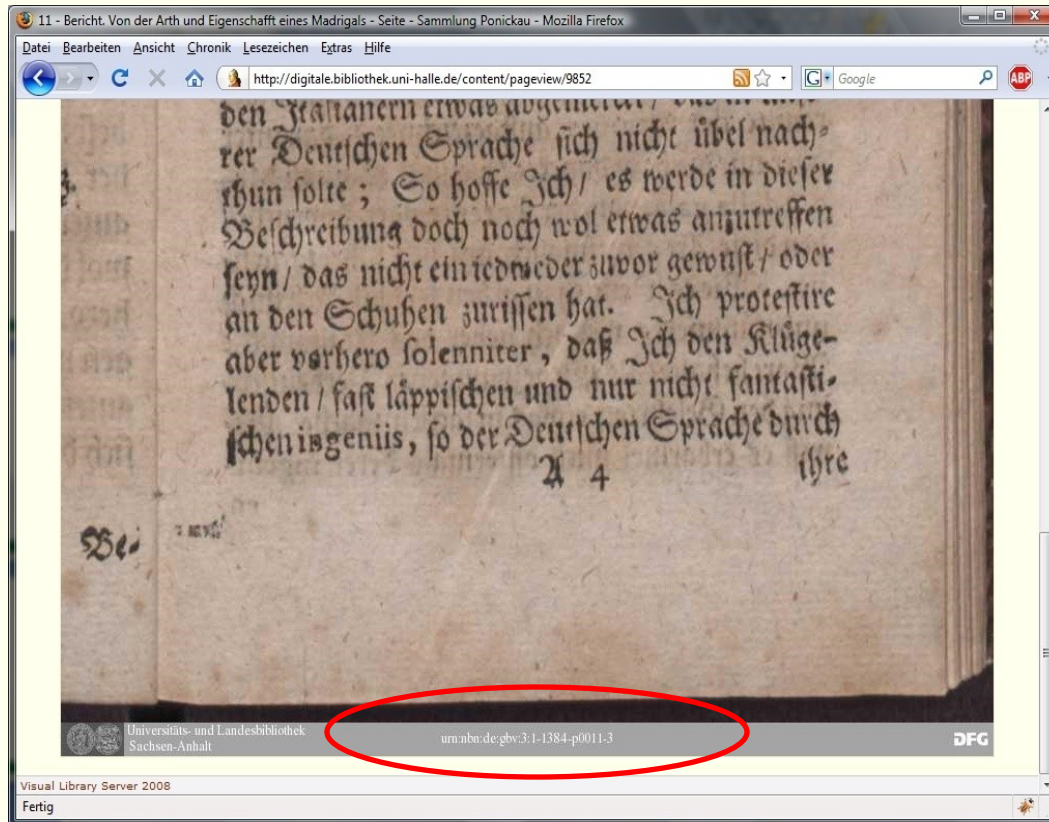 11 - Bericht. Von der Arth und Eigenschafft eines Madrigals - Seite - Sammlung Ponickau - Mozilla Firefox
Datei Bearbeiten Ansicht Chronik Lesezeichen Extras Hilfe
http://digitale.bibliothek.uni-halle.de/content/pageview/9852 G Google ABP
den Italianern etwas
rer Deutſchen Sprache ſich nicht uͤbel nach-
thun ſolte ; So hoffe Ich / es werde in dieſer
Beſchreibung doch noch wol etwas anzutreffen
ſeyn / das nicht ein iedweder zuvor gewuſt / oder
an den Schuhen zuriſſen hat. Ich proteſtire
aber vorhero ſolenniter, daß Ich den Kluͤge-
lenden / faſt laͤppiſchen und nur nicht fantaſti-
ſchen ingeniis, ſo der Deutſchen Sprache durch
A 4 ihre
Bei
Universitäts- und Landesbibliothek
Sachsen-Anhalt
urn:nbn:de:gbv:3:1-1384-p0011-3
DFG
Visual Library Server 2008
Fertig